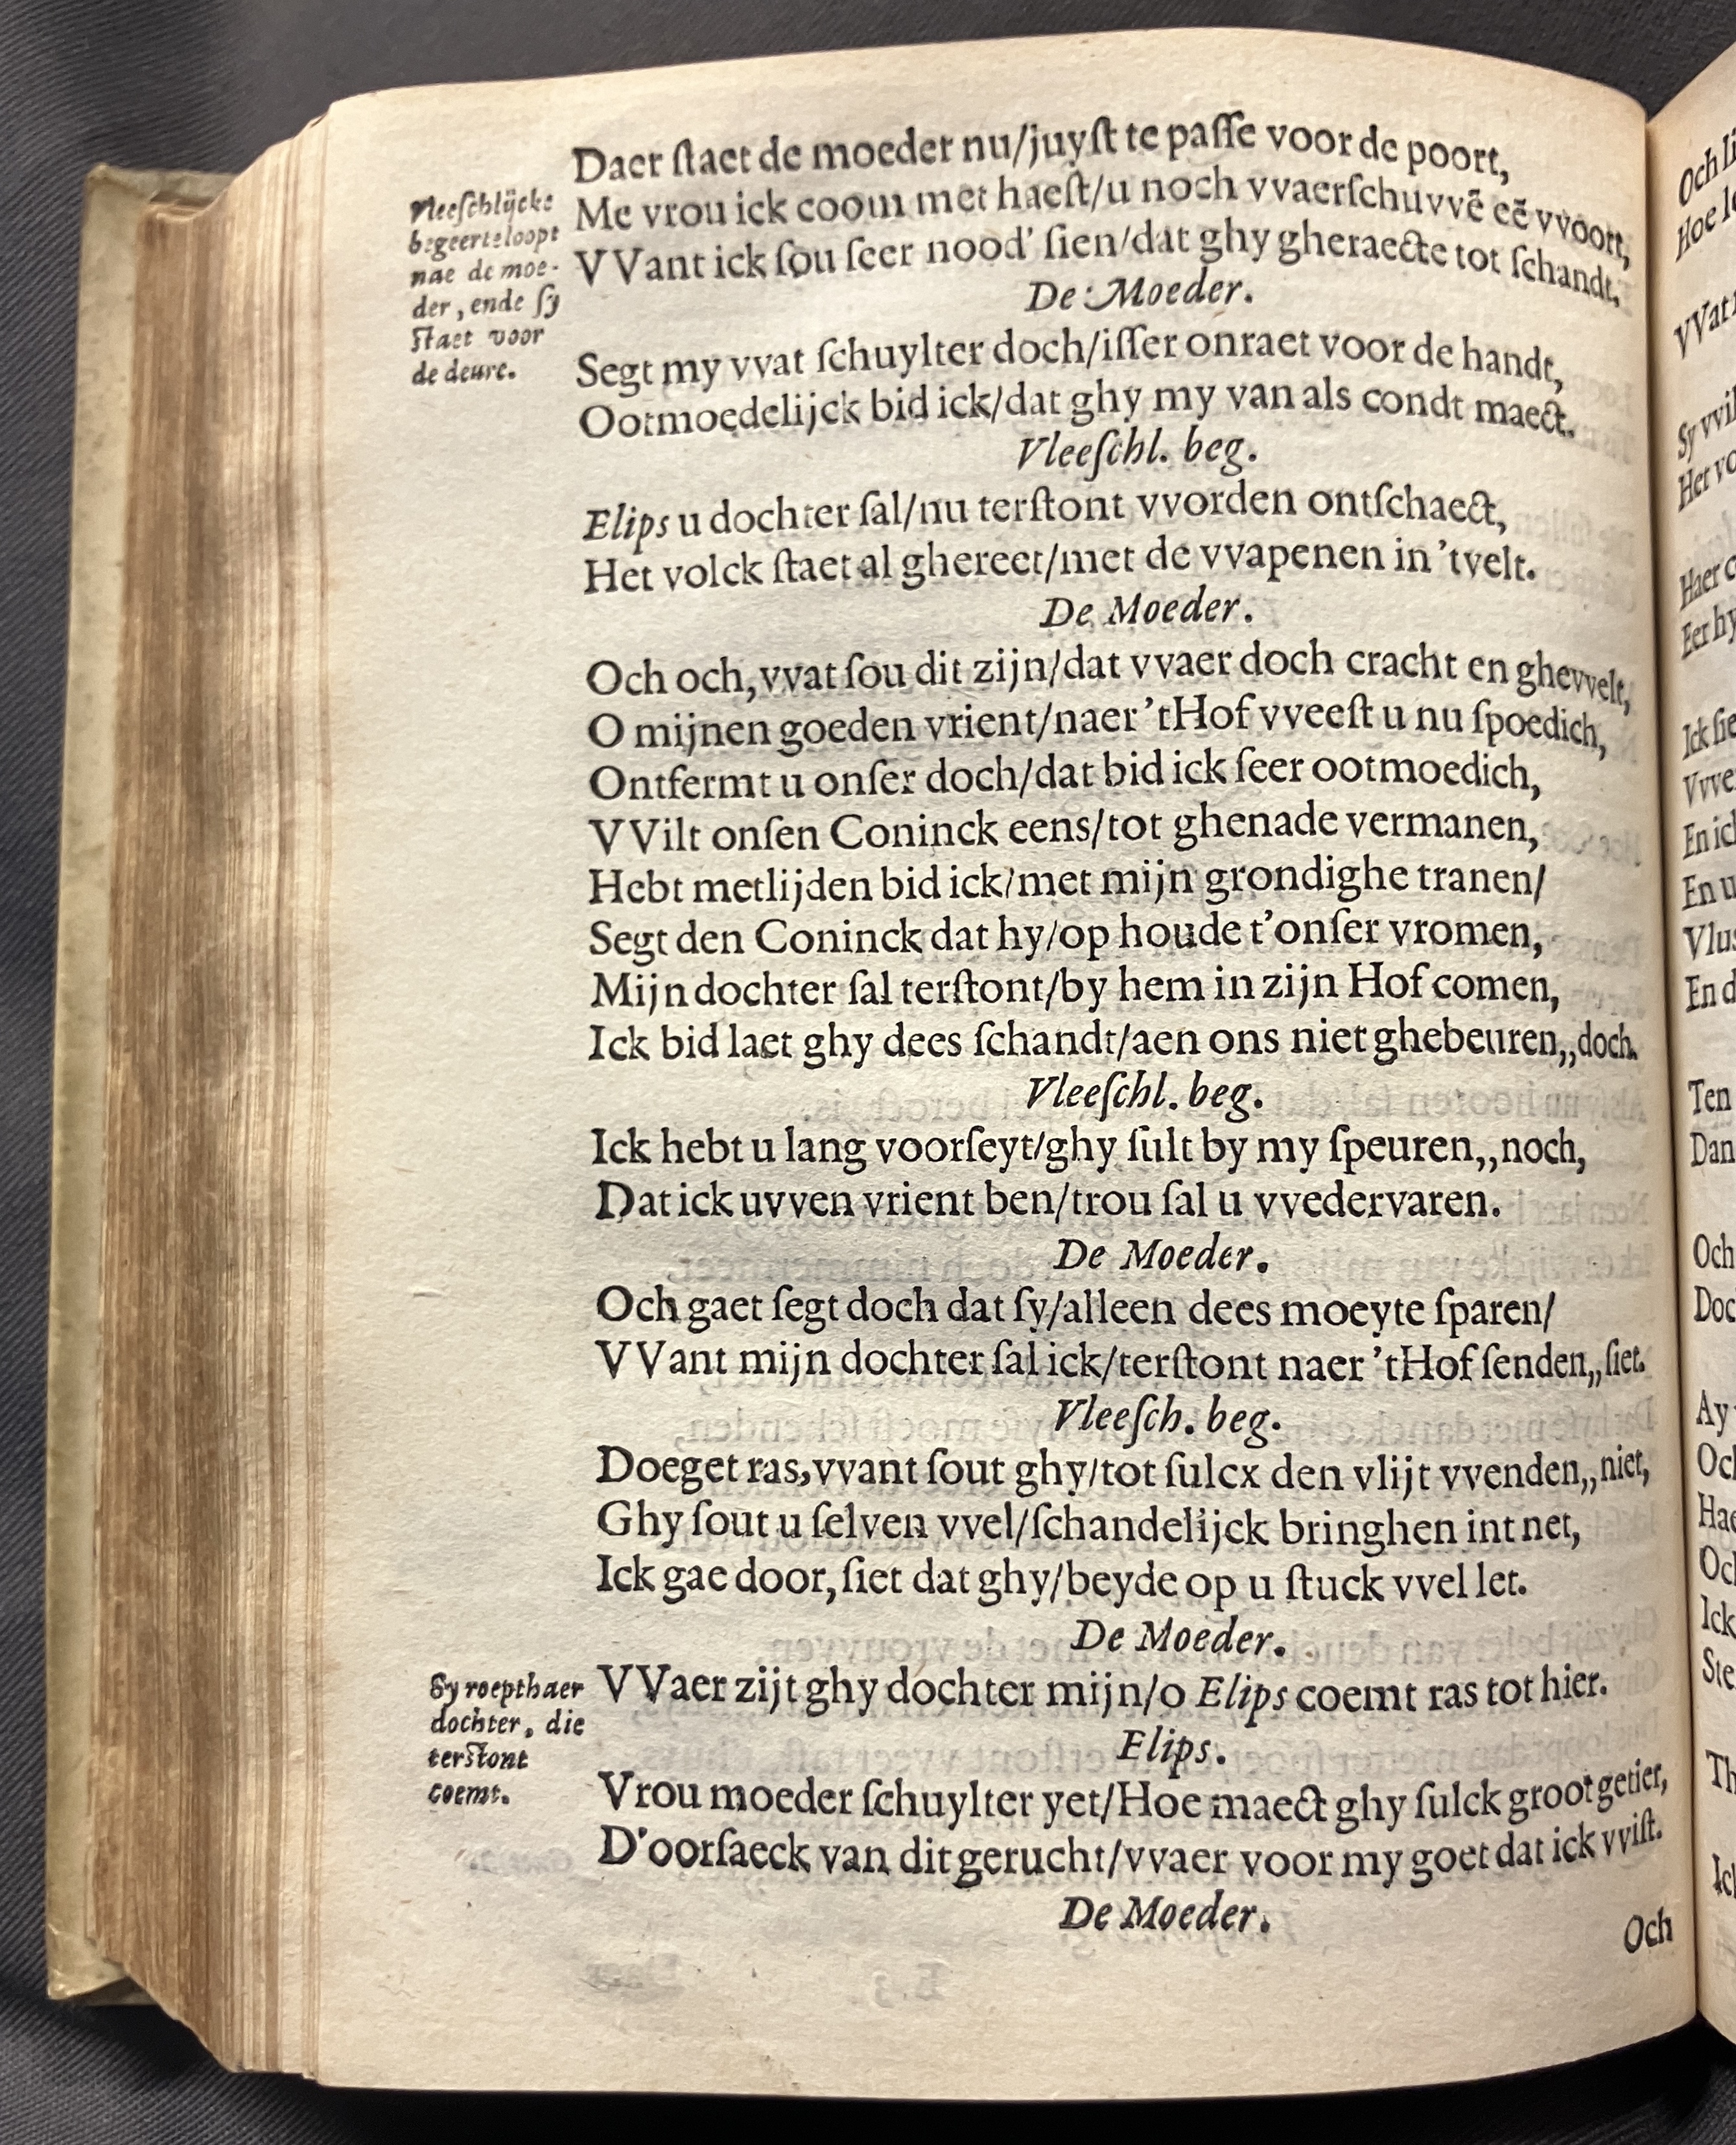 Daer ſtaet de moeder nu/juyſt te paſſe voor de poort,
Vleeſchlijcke
begeerte loopt
nae de moe-
der, ende ſy
ſtaet voor
de deure.
Me vrou ick coom met haeſt/u noch vvaerſchuvvē eē vvoort,
VVant ick ſou ſeer nood' ſien/dat ghy gheraecte tot ſchandt.
De Moeder.
Segt my vvat ſchuylter doch/iſſer onraet voor de handt,
Ootmoedelijck bid ick/dat ghy my van als condt maect.
Vleeſchl. beg.
Elips u dochter ſal/nu terſtont vvorden ontſchaect,
Het volck ſtaet al ghereet/met de vvapenen in 'tvelt.
De Moeder.
Och och, vvat ſou dit zijn/dat vvaer doch cracht en ghevvelt,
O mijnen goeden vrient/naer 'tHof vveeſt u nu ſpoedich,
Ontfermt u onſer doch/dat bid ick ſeer ootmoedich,
VVilt onſen Coninck eens/tot ghenade vermanen,
Hebt metlijden bid ick/met mijn grondighe tranen/
Segt den Coninck dat hy/op houde t'onſer vromen,
Mijn dochter ſal terſtont/by hem in zijn Hof comen,
Ick bid laet ghy dees ſchandt/aen ons niet ghebeuren,,doch.
Vleeſchl. beg.
Ick hebt u lang voorſeyt/ghy ſult by my ſpeuren,,noch,
Dat ick uvven vrient ben/trou ſal u vvedervaren.
De Moeder.
Och gaet ſegt doch dat ſy/alleen dees moeyte ſparen/
VVant mijn dochter ſal ick/terſtont naer 'tHof ſenden,,ſiet.
Vleeſch. beg.
Doeget ras, vvant ſout ghy/tot ſulcx den vlijt vvenden,,niet,
Ghy ſout u ſelven vvel/ſchandelijck bringhen int net,
Ick gae door, ſiet dat ghy/beyde op u ſtuck vvel let.
De Moeder.
Sy roept haer
dochter, die
terſtont
coemt.
VVaer zijt ghy dochter mijn/o Elips coemt ras tot hier.
Elips.
Vrou moeder ſchuylter yet/Hoe maect ghy ſulck groot getier,
D'oorſaeck van dit gerucht/vvaer voor my goet dat ick vviſt.
De Moeder.
Och